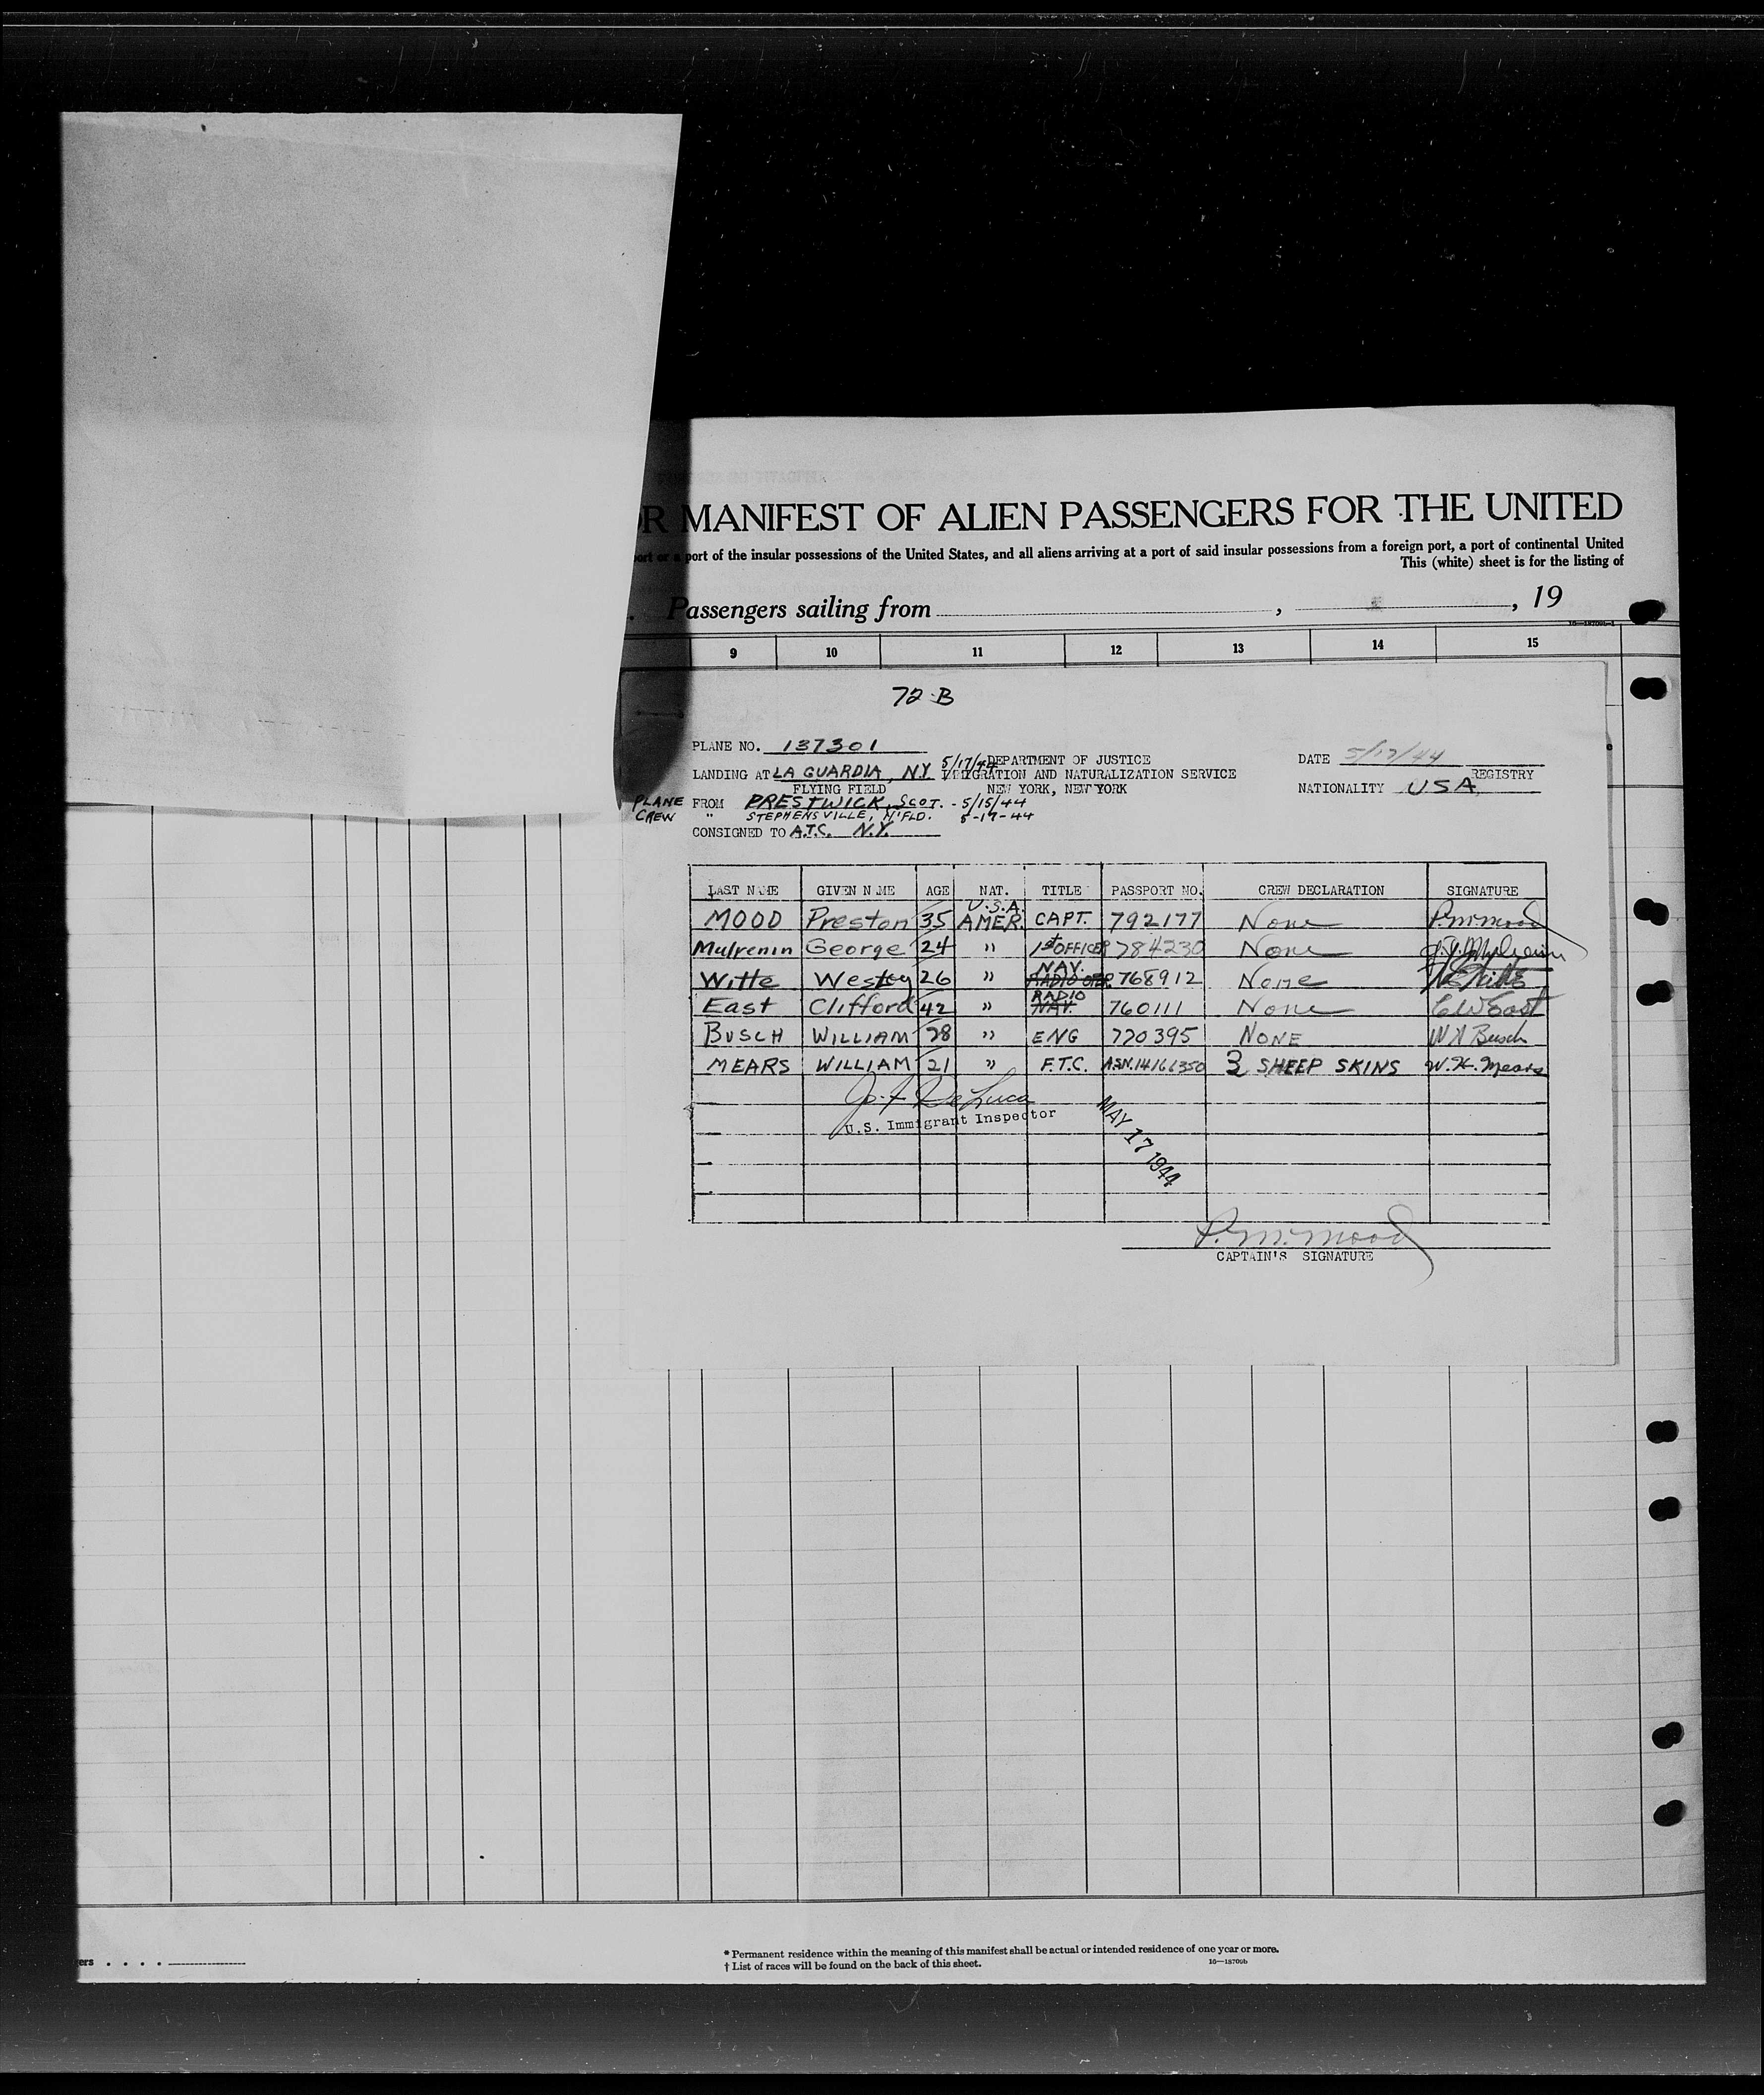 R MANIFEST OF ALIEN PASSENGERS FOR THE UNITED
port or a port of the insular possessions of the United States, and all aliens arriving at a port of said insular possessions from a foreign port, a port of continental United
This (white) sheet is for the listing of
Passengers sailing from , , 19
9 10 11 12 13 14 15
72-B
PLANE NO. 137301
5/17/44 DEPARTMENT OF JUSTICE DATE 5/17/44
LANDING AT LA GUARDIA, N.Y. IMMIGRATION AND NATURALIZATION SERVICE REGISTRY
FLYING FIELD NEW YORK, NEW YORK NATIONALITY USA
PLANE FROM PRESTWICK, SCOT. - 5/15/44
CREW " STEPHENSVILLE, N'FLD. 5-17-44
CONSIGNED TO A.T.C. N.Y.
LAST NAME GIVEN NAME AGE NAT. TITLE PASSPORT NO. CREW DECLARATION SIGNATURE
U.S.A.
MOOD Preston 35 AMER. CAPT. 792177 None P.M. Mood
Mulrenin George 24 " 1st OFFICER 784230 None
NAV.
Witte Wesley 26 " RADIO OPR. 768912 None
RADIO
East Clifford 42 " NAV. 760111 None C W East
BUSCH WILLIAM 28 " ENG 720395 NONE W H Busch
MEARS WILLIAM 21 " F.T.C. ASN.14166350 3 SHEEP SKINS W. H. Mears
Jo. F. DeLuca
U.S. Immigrant Inspector
MAY 17 1944
P. M. Mood
CAPTAIN'S SIGNATURE
* Permanent residence within the meaning of this manifest shall be actual or intended residence of one year or more.
† List of races will be found on the back of this sheet.
16—18709b